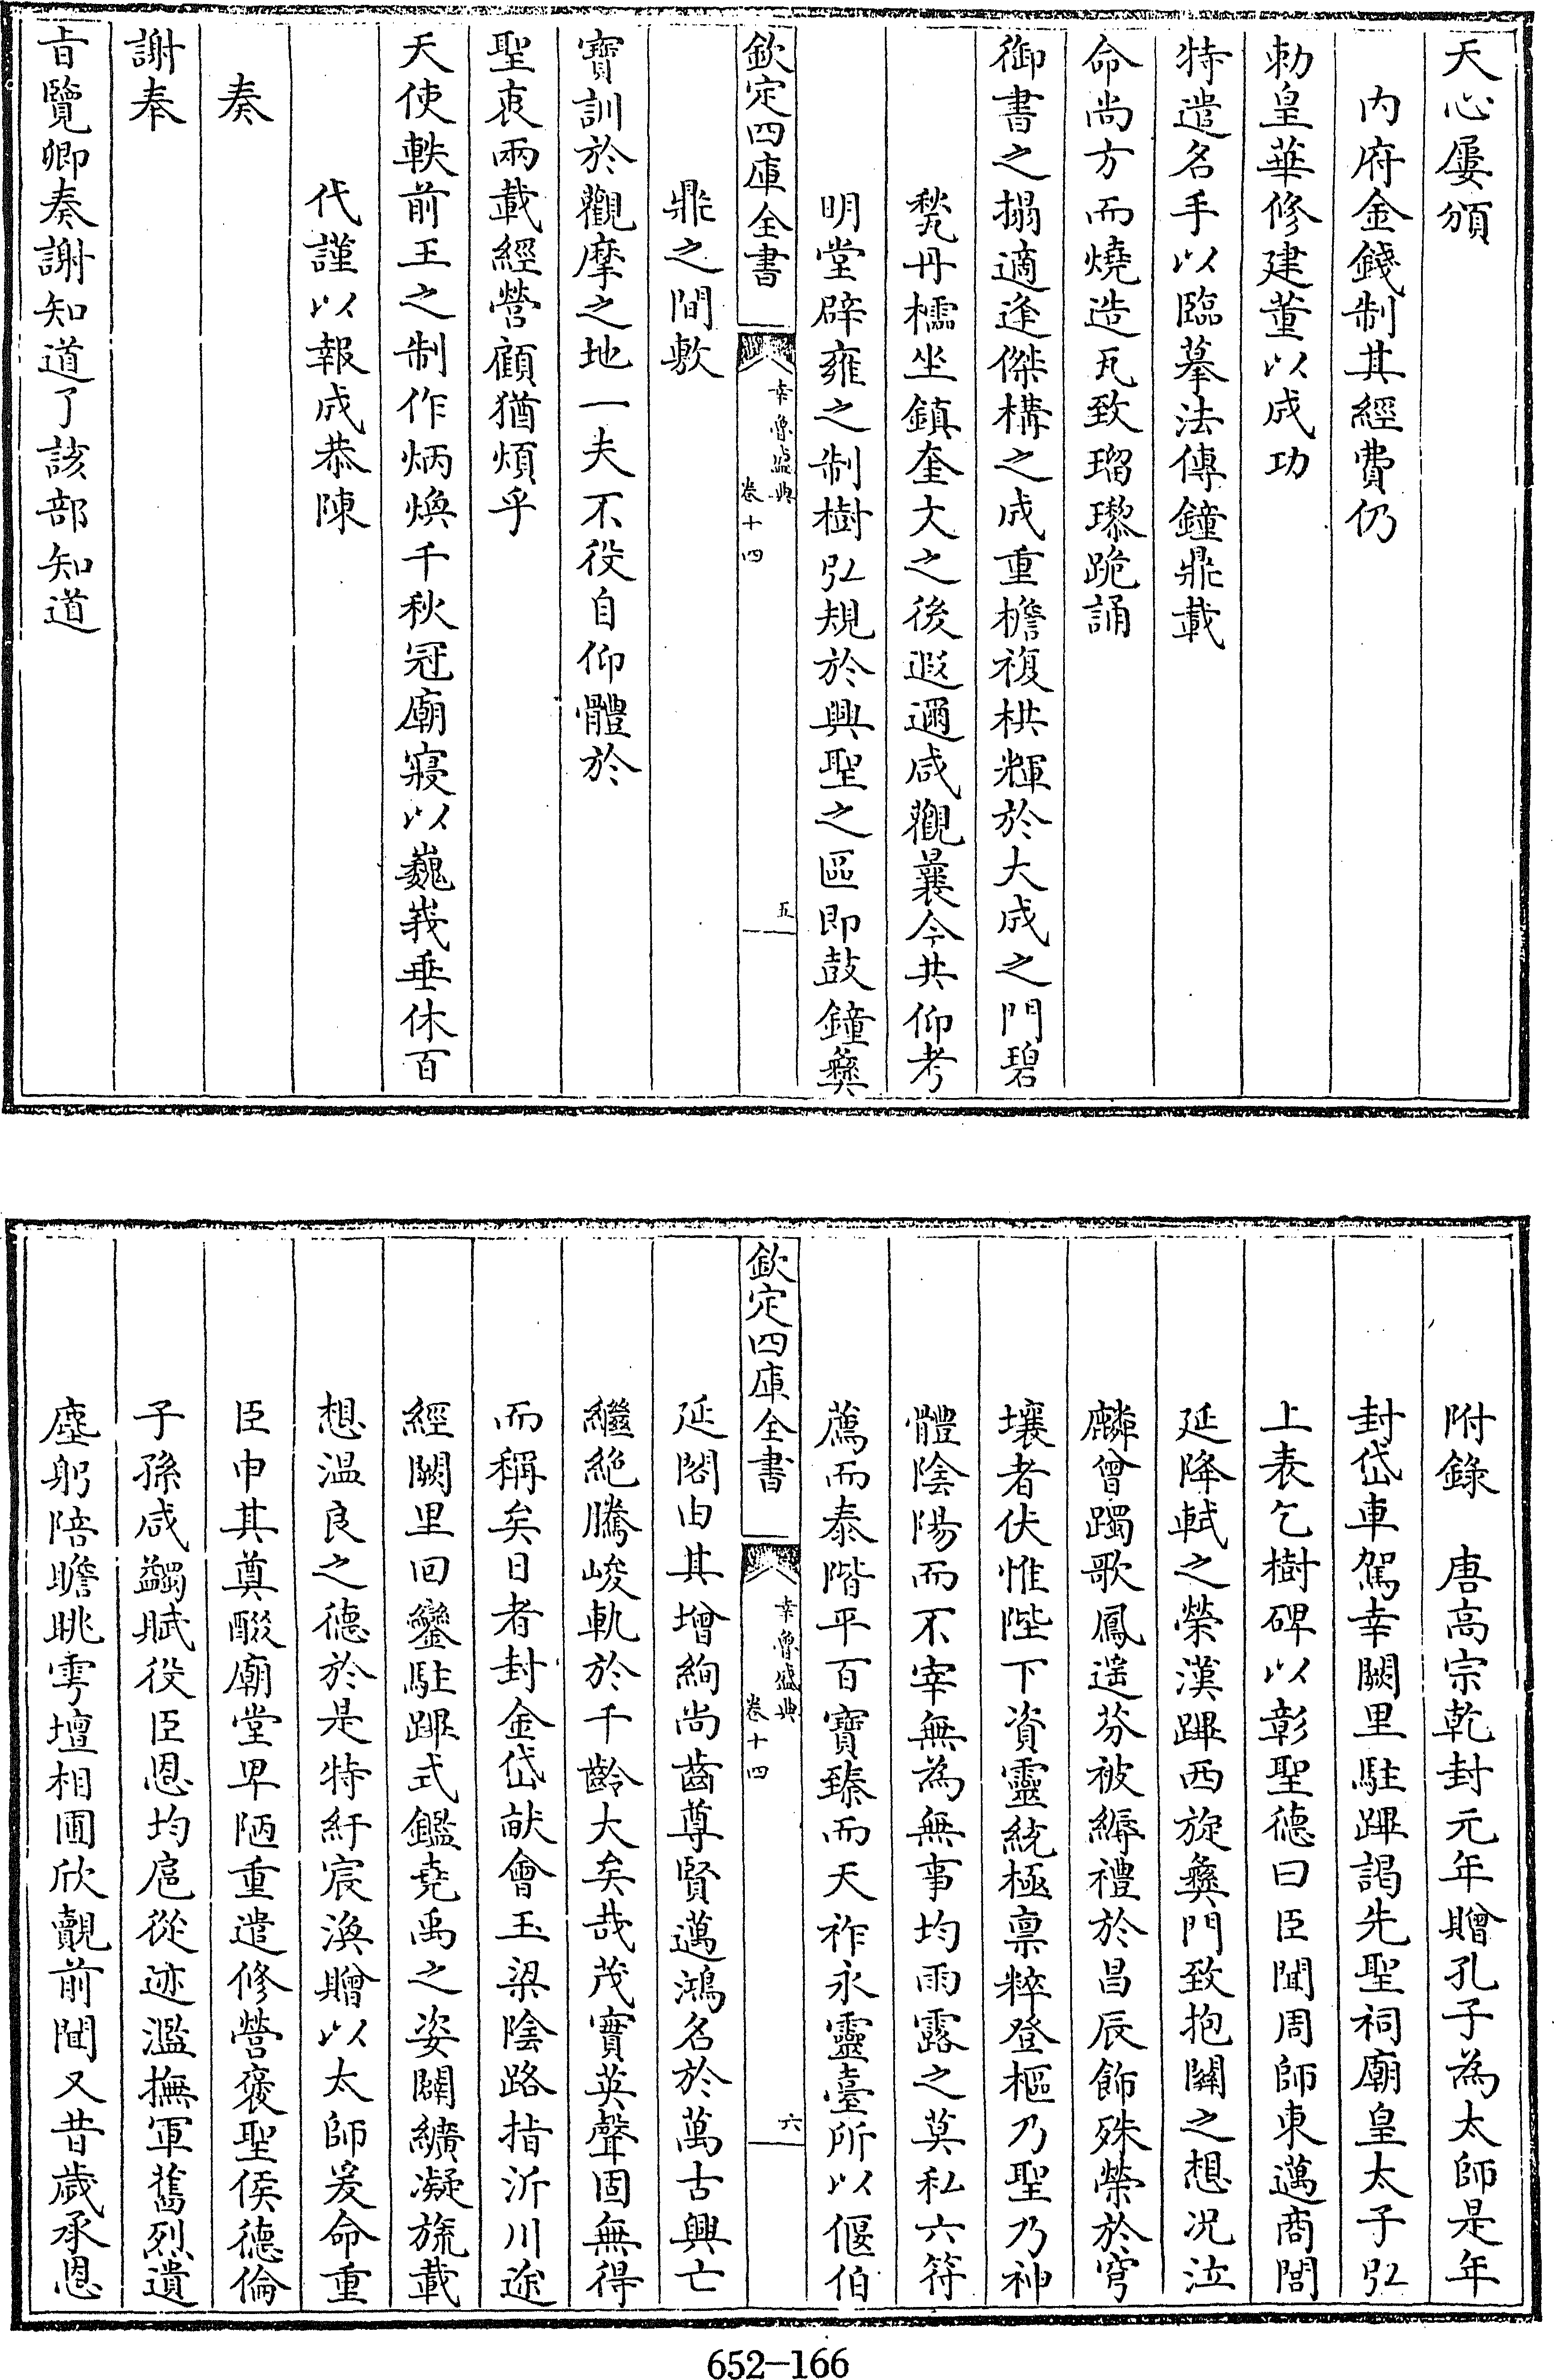 天心屢頒
内府金錢制其經費仍
勅皇華修建董以成功
特遣名手以臨摹法傳鐘鼎載
命尚方而燒造瓦致瑠瓈跪誦
御書之搨適逢傑構之成重檐複栱輝於大成之門碧
甃丹櫺坐鎮奎文之後遐邇咸觀曩今共仰考
明堂辟雍之制樹弘規於興聖之區即鼓鐘彝
欽定四庫全書
幸魯盛典
卷十四
五
鼎之間敷
寶訓於觀摩之地一夫不役自仰體於
聖衷兩載經營顧猶煩乎
天使軼前王之制作炳煥千秋冠廟寢以巍峩垂休百
代謹以報成恭陳
奏
謝奉
㫖覽卿奏謝知道了該部知道
附錄 唐高宗乾封元年贈孔子為太師是年
封岱車駕幸闕里駐蹕謁先聖祠廟皇太子弘
上表乞樹碑以彰聖德曰臣聞周師東邁商閭
延降軾之榮漢蹕西旋彝門致抱關之想况泣
麟曾躅歌鳳遥芬被縟禮於昌辰飾殊榮於穹
壤者伏惟陛下資靈統極禀粹登樞乃聖乃神
體陰陽而不宰無為無事均雨露之莫私六符
薦而泰階平百寶臻而天祚永靈臺所以偃伯
欽定四庫全書
幸魯盛典
卷十四
六
延閣由其增絢尚齒尊賢邁鴻名於萬古興亡
繼絶騰峻軌於千齡大矣哉茂實英聲固無得
而稱矣日者封金岱畎會玉梁陰路指沂川途
經闕里回鑾駐蹕式鑑堯禹之姿闢纊凝旒載
想温良之德於是特紆宸渙贈以太師爰命重
臣申其奠醊廟堂卑陋重遣修營褒聖侯德倫
子孫咸蠲賦役臣恩均扈從迹濫撫軍舊烈遺
塵躬陪瞻眺雩壇相圃欣覩前聞又昔歲承恩
652-166